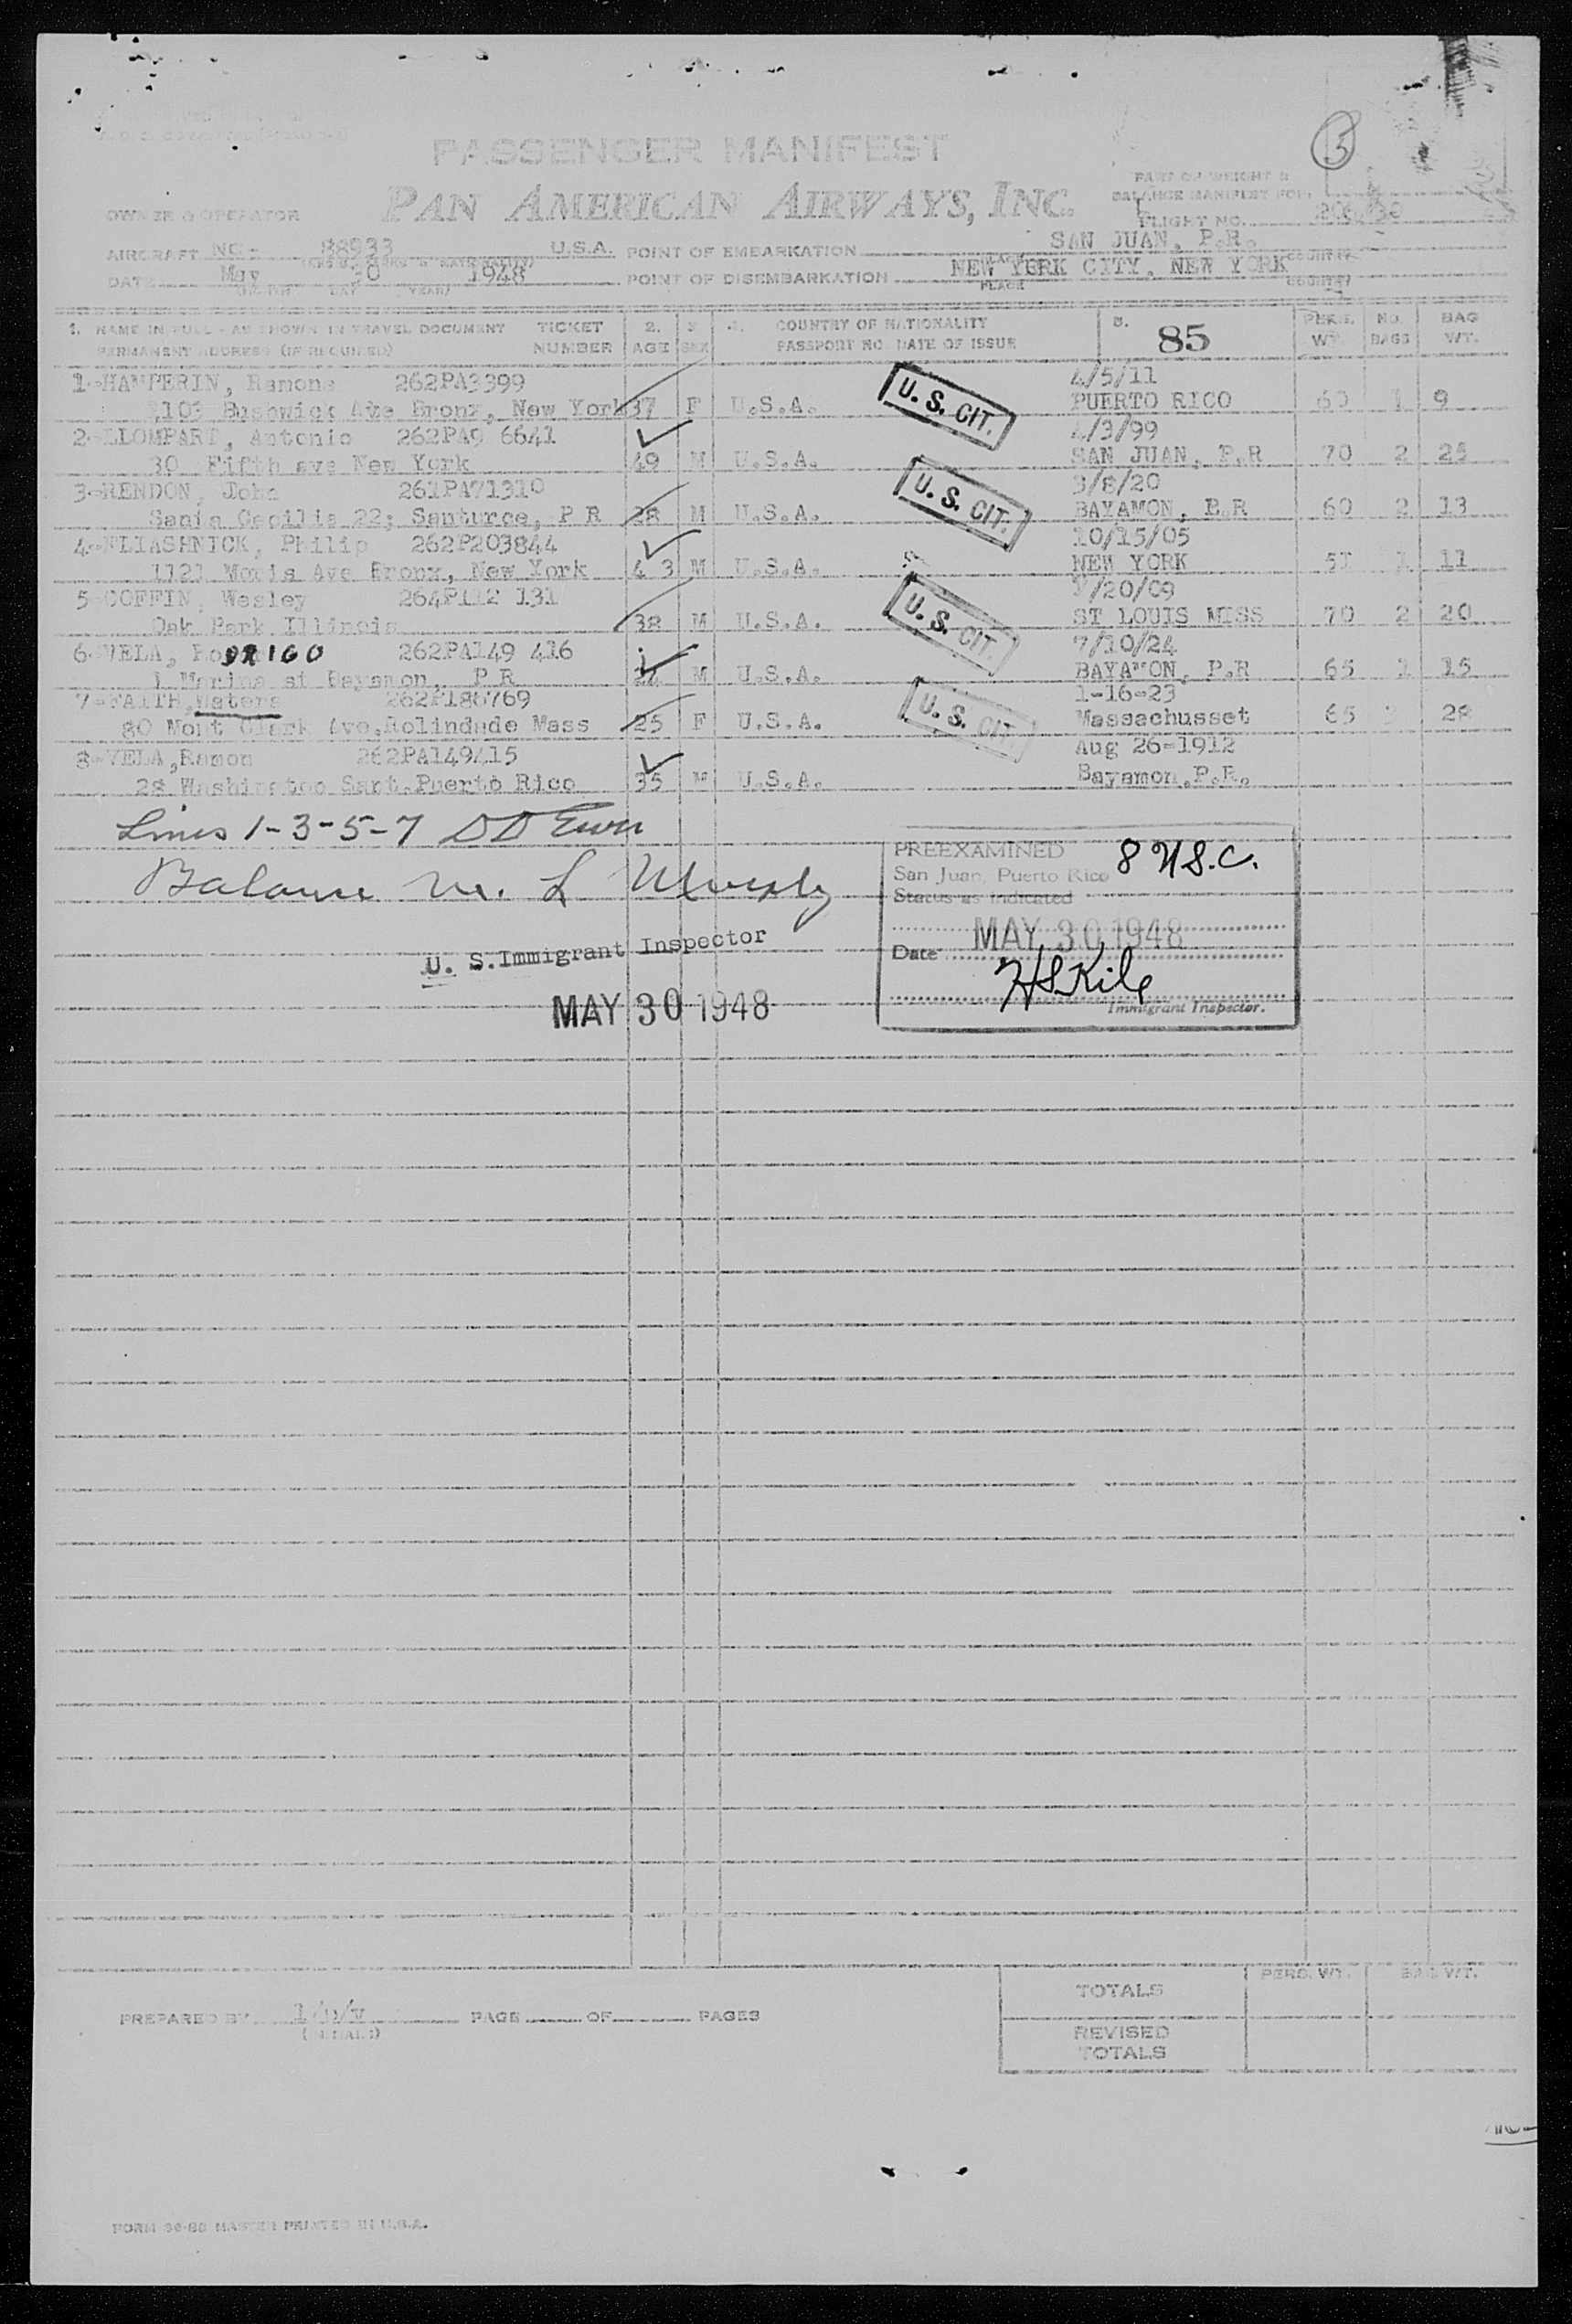 3
PASSENGER MANIFEST
PAN AMERICAN AIRWAYS, INC.
PART OF WEIGHT &
BALANCE MANIFEST FOR:
OWNER & OPERATOR
FLIGHT NO.
AIRCRAFT NO. 88933 U.S.A. POINT OF EMBARKATION SAN JUAN, P.R.
DATE May 30 1948 POINT OF DISEMBARKATION NEW YORK CITY, NEW YORK
PLACE COUNTRY
1. NAME IN FULL - AS SHOWN IN TRAVEL DOCUMENT TICKET 2. 3 4. COUNTRY OF NATIONALITY 5. 85 PERS. NO. BAG
PERMANENT ADDRESS (IF REQUIRED) NUMBER AGE SEX PASSPORT NO. DATE OF ISSUE WT. BAGS WT.
1- Ramona 262PA3399 4/5/11
Bushwick Ave Bronx, New York 37 F U.S.A. U. S. CIT. PUERTO RICO 60 1 9
2-LLOMPART, Antonio 262PA9 6641 4/3/99
30 Fifth ave New York 49 M U.S.A. SAN JUAN, P.R 70 2 25
3-RENDON, John 261PA71310 3/8/20
Santa Cecilia 22; Santurce, P R 28 M U.S.A. U. S. CIT. BAYAMON, P.R 60 2 13
4-ELIASHNICK, Philip 262P203844 10/15/05
1121 Moris Ave Bronx, New York 4 3 M U.S.A. NEW YORK 1 11
5-COFFIN, Wesley 264P112 131 /20/09
Oak Park Illinois 38 M U.S.A. U. S. CIT. ST LOUIS MISS 70 2 20
6-VELA, RODRIGO 262PA149 416 7/10/24
1 Marina st Bayamon, P R M U.S.A. BAYAMON, P.R 65 1 15
7-FAITH, Waters 262P186769 1-16-23
80 Mont Clark Ave, Rolindade Mass 25 F U.S.A. U. S. CIT. Massachusset 65 28
8-VELA, Ramon 262PA149415 Aug 26-1912
28 Washington Sant. Puerto Rico 35 M U.S.A. Bayamon, P.R.
Lines 1-3-5-7 DD Ewen
Balance M. L
U. S. Immigrant Inspector
MAY 30 1948
PREEXAMINED 8 U.S.C.
San Juan, Puerto Rico
Status as indicated
Date MAY 30 1948
HS Kile
Immigrant Inspector.
TOTALS PERS. WT. BAG WT.
PREPARED BY PAGE OF PAGES
(INITIALS)
REVISED
TOTALS
FORM 36-88 MASTER PRINTED IN U.S.A.